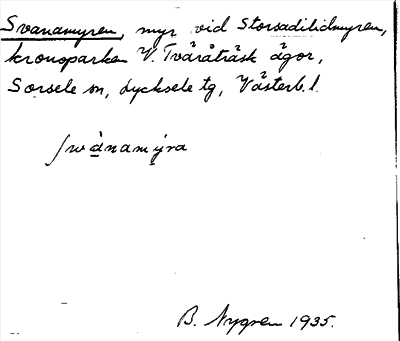 Svanamyren, myr vid Storsadilidmyren,
kronoparken V. Tväråträsk ägor,
Sorsele sn, Lycksele tg, Västerb. l.
B. Nygren 1935.